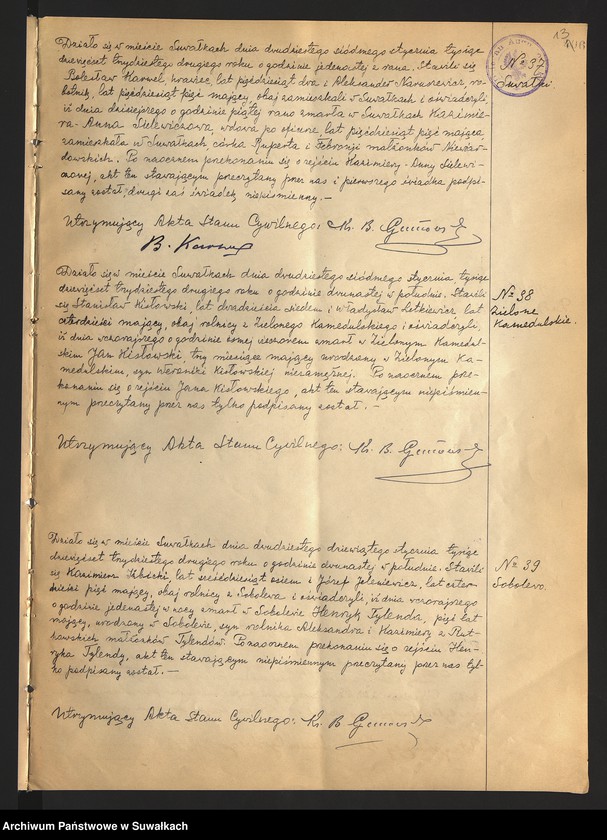 13
Nº 37
Suwałki
Działo się w mieście Suwałkach dnia dwudziestego siódmego stycznia tysiąc
dziewięćset trzydziestego drugiego roku o godzinie jedenastej z rana. Stawili się
Bolesław Karwel, krawiec, lat pięćdziesiąt dwa i Aleksander ro-
botnik, lat pięćdziesiąt pięć mający, obaj zamieszkali w Suwałkach i oświadczyli,
iż dnia dzisiejszego o godzinie piątej rano zmarła w Suwałkach Kazimie-
ra-Anna wdowa po oficerze, lat pięćdziesiąt pięć mająca
zamieszkała w Suwałkach, córka Ruperta i Febronji małżonków
Po naocznem przekonaniu się o zejściu Kazimiery-Anny
akt ten stawającym przeczytany przez nas i pierwszego świadka podpi-
sany został, drugi zaś świadek niepiśmienny. —
Utrzymujący Akta Stanu Cywilnego: Ks. B.
B. Karwel
Nº 38
Zielone
Kamedulskie.
Działo się w mieście Suwałkach dnia dwudziestego siódmego stycznia tysiąc
dziewięćset trzydziestego drugiego roku o godzinie dwunastej w południe. Stawili
się Stanisław Kisłowski, lat dwadzieścia siedem i Władysław Letkiewicz, lat
czterdzieści mający, obaj rolnicy z Zielonego Kamedulskiego i oświadczyli,
iż dnia wczorajszego o godzinie ósmej wieczorem zmarł w Zielonym Kamedul-
skiem Jan Kisłowski, trzy miesiące mający urodzony w Zielonym Ka-
medulskim, syn Weroniki Kisłowskiej niezamężnej. Po naocznem prze-
konaniu się o zejściu Jana Kisłowskiego, akt ten stawającym niepiśmien-
nym przeczytany przez nas tylko podpisany został. —
Utrzymujący Akta Stanu Cywilnego: Ks. B.
Nº 39
Sobolewo.
Działo się w mieście Suwałkach dnia dwudziestego dziewiątego stycznia tysiąc
dziewięćset trzydziestego drugiego roku o godzinie dwunastej w południe. Stawili
się Kazimierz lat sześćdziesiąt osiem i Józef Jeleniewicz, lat czter-
dzieści pięć mający, obaj rolnicy z Sobolewa i oświadczyli, iż dnia wczorajszego
o godzinie jedenastej w nocy zmarł w Sobolewie Henryk Tylenda, pięć lat
mający, urodzony w Sobolewie, syn rolnika Aleksandra i Kazimiery z Rut-
kowskich małżonków Tylendów. Po naocznem przekonaniu się o zejściu Hen-
ryka Tylendy, akt ten stawającym niepiśmiennym przeczytany przez nas tyl-
ko podpisany został. —
Utrzymujący Akta Stanu Cywilnego: Ks. B.
Archiwum Państwowe w Suwałkach